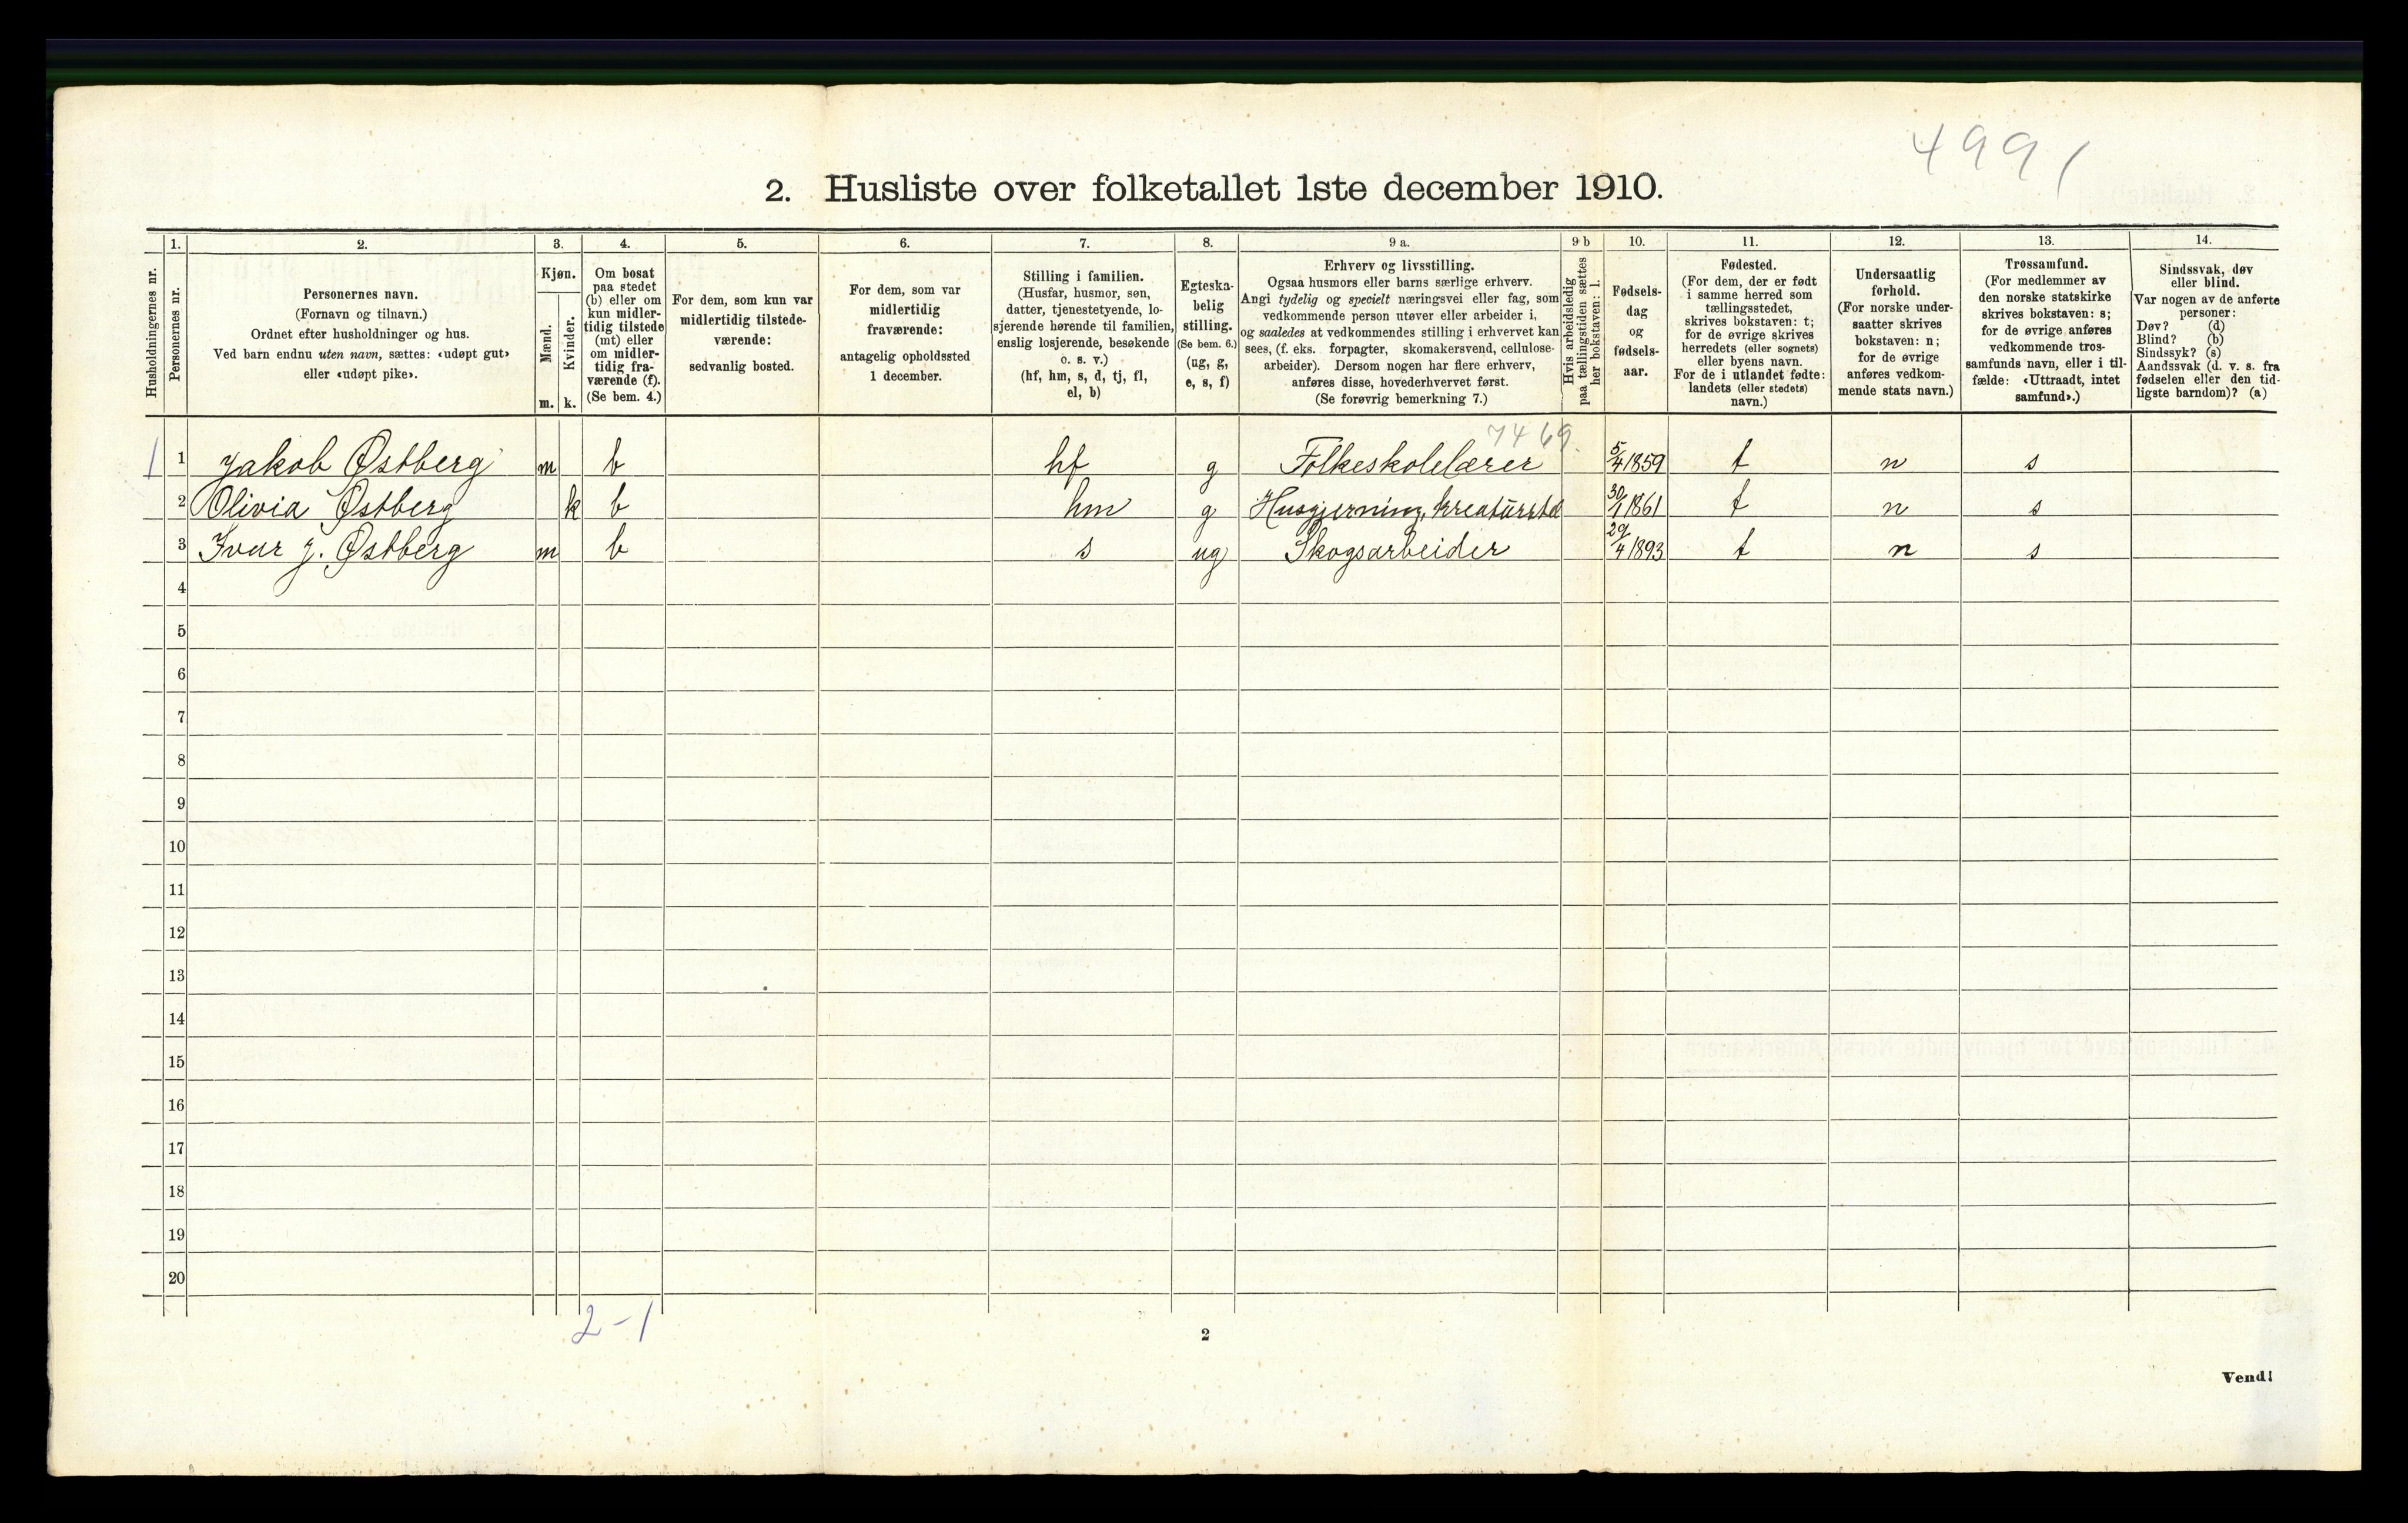 4991
2. Husliste over folketallet 1ste december 1910.
Husholdningernes nr.
1.
Personernes nr.
2.
Personernes navn.
(Fornavn og tilnavn.)
Ordnet efter husholdninger og hus.
Ved barn endnu uten navn, sættes: «udøpt gut»
eller «udøpt pike».
3.
Kjøn.
Mænd.
m.
Kvinder.
k.
4.
Om bosat
paa stedet
(b) eller om
kun midler-
tidig tilstede
(mt) eller
om midler-
tidig fra-
værende (f).
(Se bem. 4.)
5.
For dem, som kun var
midlertidig tilstede-
værende:
sedvanlig bosted.
6.
For dem, som var
midlertidig
fraværende:
antagelig opholdssted
1 december.
7.
Stilling i familien.
(Husfar, husmor, søn,
datter, tjenestetyende, lo-
sjerende hørende til familien,
enslig losjerende, besøkende
o. s. v.)
(hf, hm, s, d, tj, fl,
el, b)
8.
Egteska-
belig
stilling.
(Se bem. 6.)
(ug, g,
e, s, f)
9 a.
Erhverv og livsstilling.
Ogsaa husmors eller barns særlige erhverv.
Angi tydelig og specielt næringsvei eller fag, som
vedkommende person utøver eller arbeider i,
og saaledes at vedkommendes stilling i erhvervet kan
sees, (f. eks. forpagter, skomakersvend, cellulose-
arbeider). Dersom nogen har flere erhverv,
anføres disse, hovederhvervet først.
(Se forøvrig bemerkning 7.)
9 b
Hvis arbeidsledig
paa tællingstiden sættes
her bokstaven: l.
10.
Fødsels-
dag
og
fødsels-
aar.
11.
Fødested.
(For dem, der er født
i samme herred som
tællingsstedet,
skrives bokstaven: t;
for de øvrige skrives
herredets (eller sognets)
eller byens navn.
For de i utlandet fødte:
landets (eller stedets)
navn.)
12.
Undersaatlig
forhold.
(For norske under-
saatter skrives
bokstaven: n;
for de øvrige
anføres vedkom-
mende stats navn.)
13.
Trossamfund.
(For medlemmer av
den norske statskirke
skrives bokstaven: s;
for de øvrige anføres
vedkommende tros-
samfunds navn, eller i til-
fælde: «Uttraadt, intet
samfund».)
14.
Sindssvak, døv
eller blind.
Var nogen av de anførte
personer:
Døv? (d)
Blind? (b)
Sindssyk? (s)
Aandssvak (d. v. s. fra
fødselen eller den tid-
ligste barndom)? (a)
7469
1 1 Jakob Østberg m b hf g Folkeskolelærer 5/4 1859 t n s
2 Olivia Østberg k b hm g Husgjerning, kreaturstel 30/1 1861 t n s
3 Ivar J. Østberg m b s ug Skogsarbeider 29/4 1893 t n s
4
5
6
7
8
9
10
11
12
13
14
15
16
17
18
19
20
2-1
2
Vend!